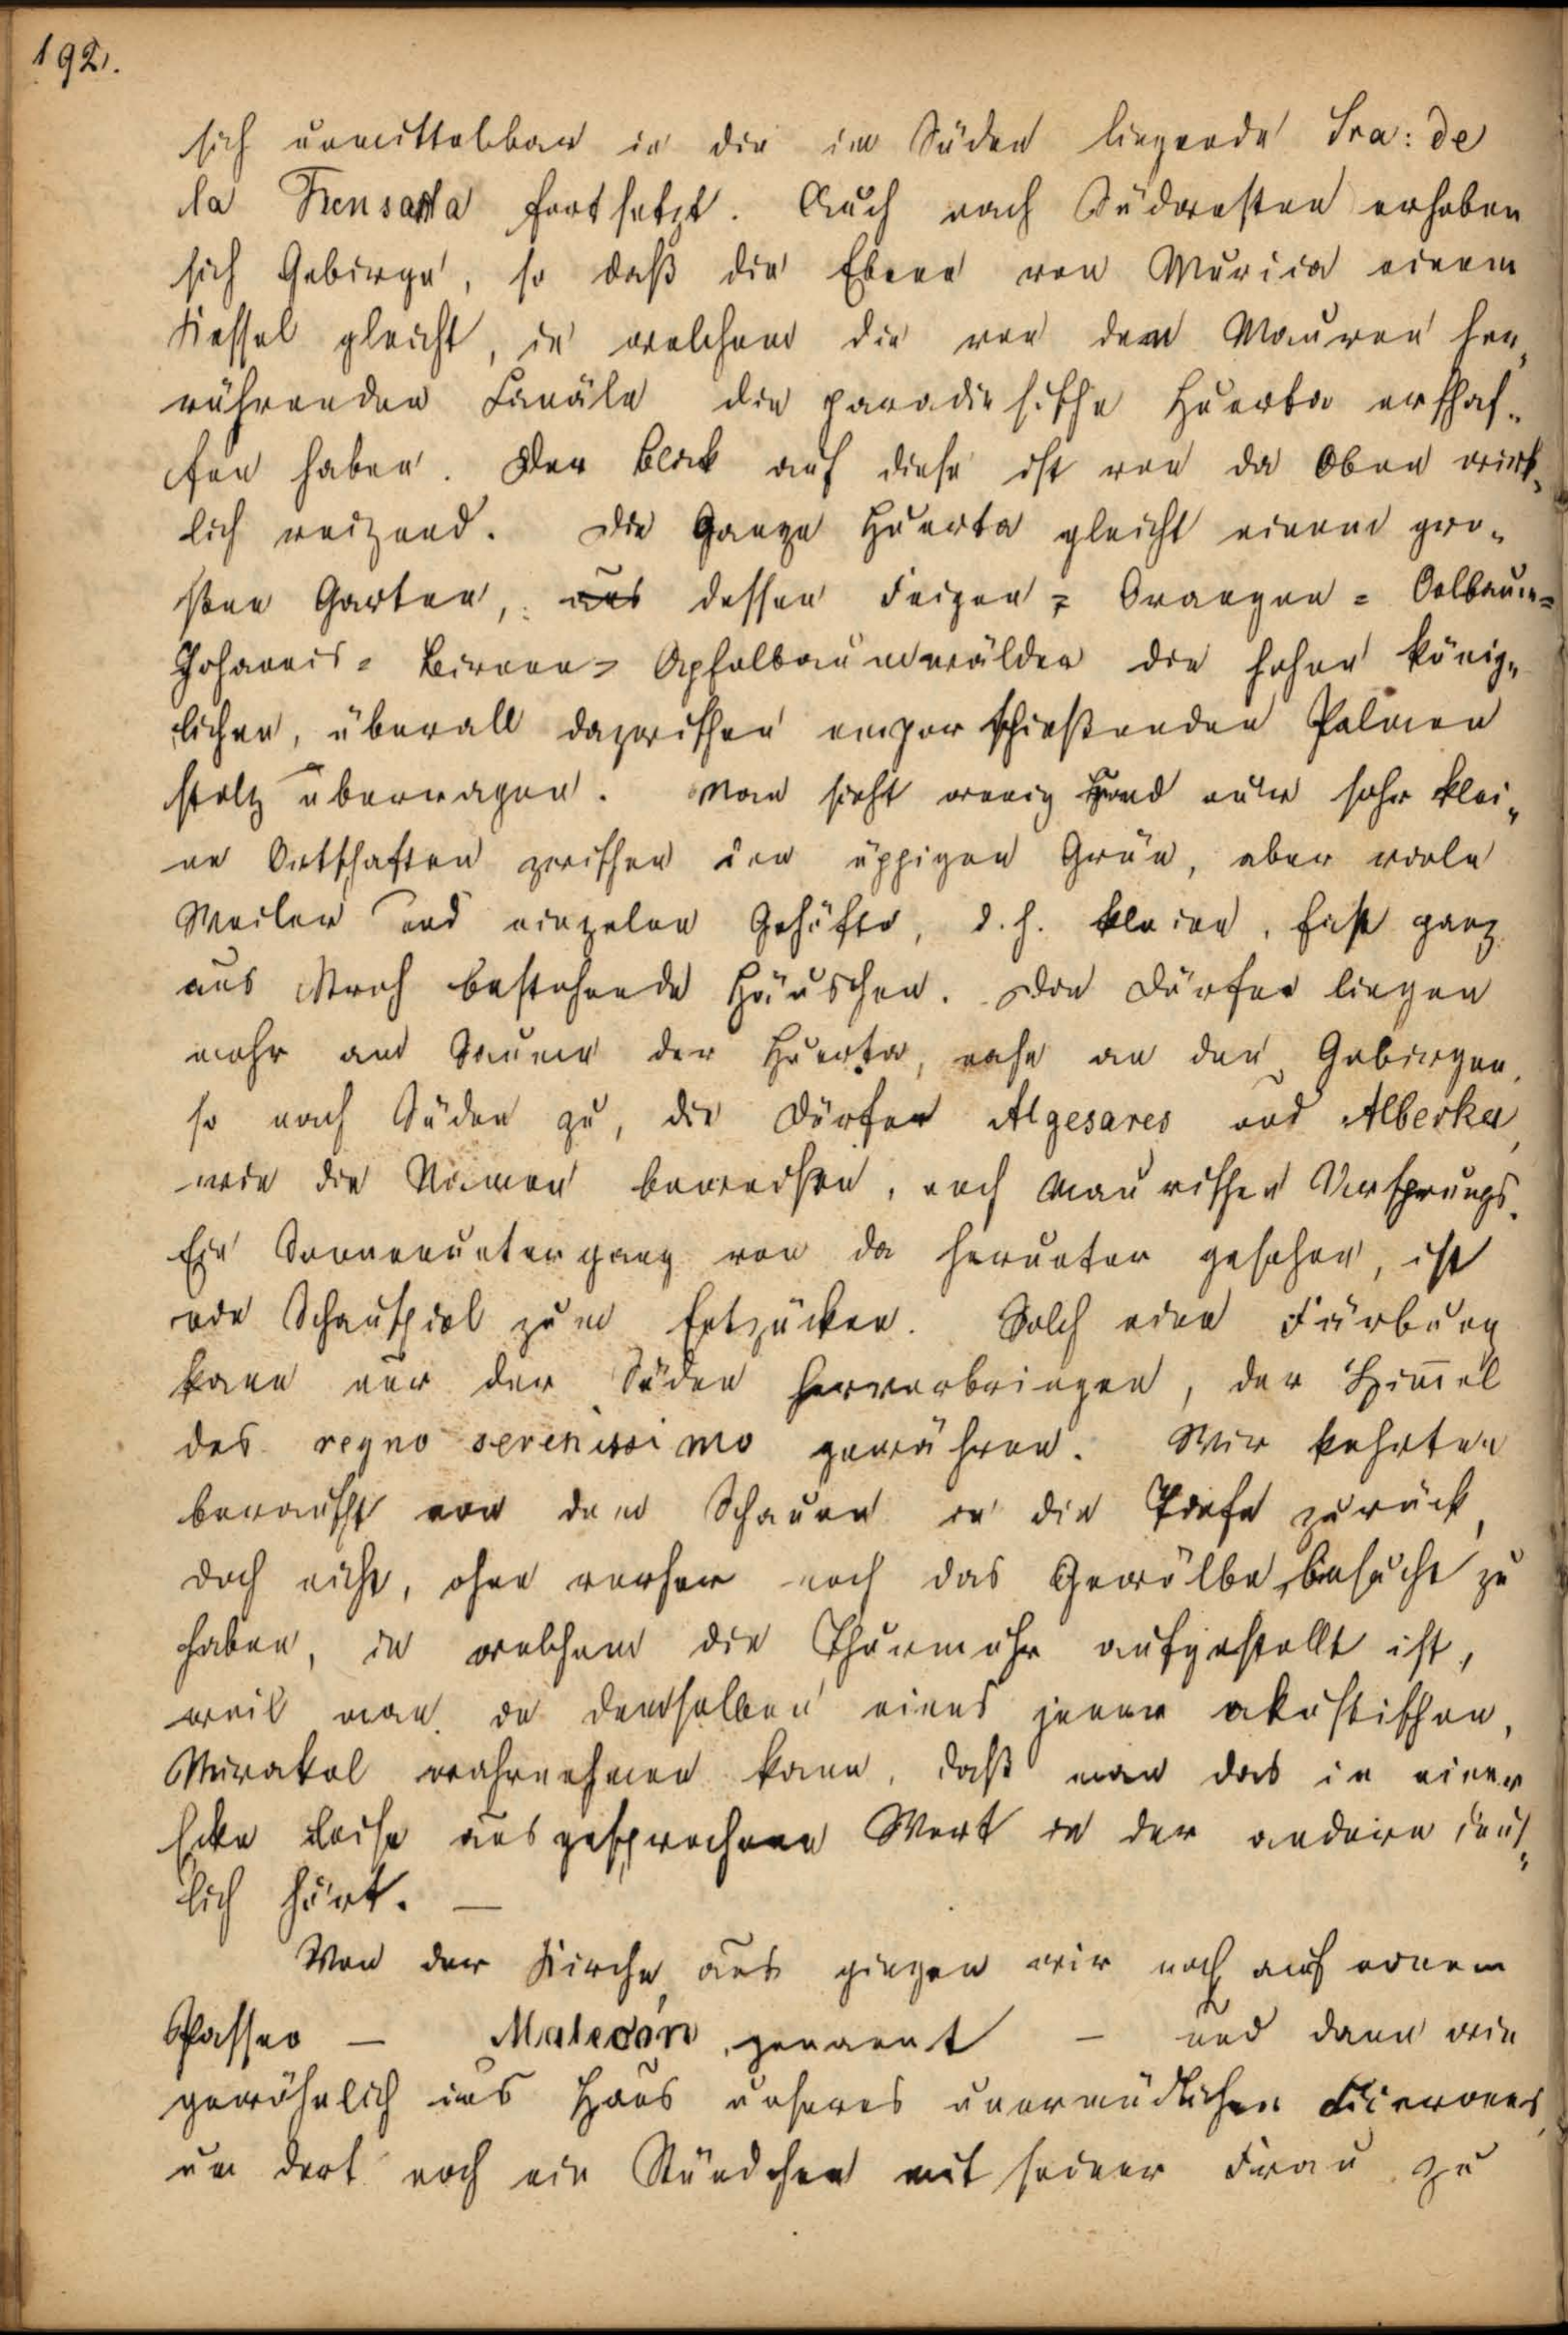 192.
sich unmittelbar in die im Süden liegende Sra: de
la Fuensanta fortsetzt. Auch nach Südwesten erheben
sich Gebirge, so daß die Ebene von Murica einem
Kessel gleicht, in welchem die von den Mauren her„
rührenden Canäle die paradiesische Huerta erschaf„
fen haben. Der Blick auf diese ist von da Oben wirk„
lich reizend. Die Ganze Huerta gleicht einem gro„
ßen Garten, aus dessen Feigen= Orangen= Oelbaum=
Johannis= Birnen= Apfelbaumwälder die hohen könig„
lichen, überall dazwischen empor schießenden Palmen
stolz überragen. Man sieht wenig und nur sehr klei„
ne Ortschaften zwischen den üppigen Grün, aber viele
Weiler und einzelne Gehöfte, d. h. kleine, fast ganz
aus Stroh bestehende Häuschen. Die Dörfer liegen
mehr am Saume der Huerta, nahe an den Gebirgen,
so nach Süden zu, die Dörfer Algesares und Alberka,
wie die Namen beweisen, noch maurischen Ursprungs.
Ein Sonnenuntergang von da herunter gesehen, ist
ein Schauspiel zum Entzücken. Solch eine Färbung
kann nur der Süden hervorbringen, der Him̅el
des regno serenissimo gewähren. Wir kehrten
berauscht von dem Schauen in die Tiefe zurück,
doch nicht, ohne vorher noch das Gewölbe besucht zu
haben, in welchem die Thurmuhr aufgestellt ist,
weil man in demselben eines jener akustischen,
Mirakel wahrnehmen kann, daß man das in einer
Ecke leise ausgesprochene Wort in der andern deut„
lich hört. —
Von der Kirche aus gingen wir noch auf einem
Passeo — Malecón genannt — und dann wie
gewöhnlich ins Haus unseres unermüdlichen Cicerones,
um dort noch ein Stündchen mit seiner Frau zu